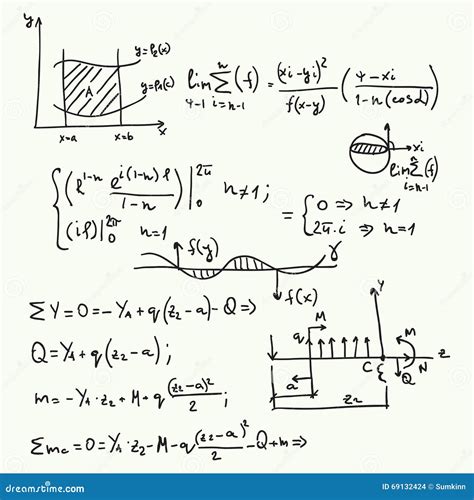 y
y=f₂(x)
A
y=f₁(x)
x=a x=b x
lim∑(f) = (xi-yi)² / f(x-y) (4-xi / 1-n(cosd))
n
4-1 i=n-1
xi
lim∑(f)
n
i=n-1
{ (R^(1-n) e^(i(1-n)φ) / 1-n) |₀^(2π) n≠1;
(iφ)|₀^(2π) n=1
= { 0 ⇒ n≠1
2π·i ⇒ n=1
f(y) γ
f(x)
∑Y=0=-Y₁+q(z₂-a)-Q⇒
Q=Y₁+q(z₂-a);
m=-Y₁·z₂+M+q(z₂-a)²/2;
∑mc=0=Y₁·z₂-M-q(z₂-a)²/2-Q+m⇒
Y
M
q M
a C ξ Q N z
z₂
dreamstime.com
ID 69132424 © Sumkinn